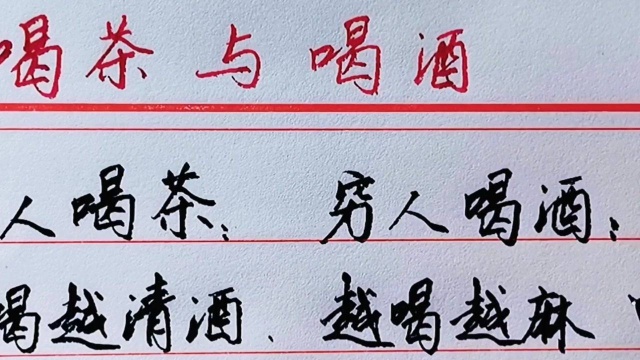 喝茶与喝酒
人喝茶； 穷人喝酒；
喝越清酒、越喝越麻